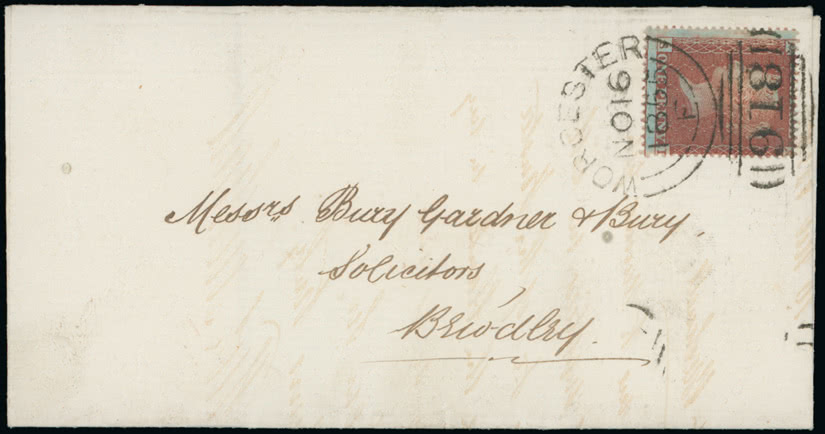 WORCESTER
NO16
1855
F
918
Messrs Bury Gardner & Bury,
Solicitors
Bewdley.